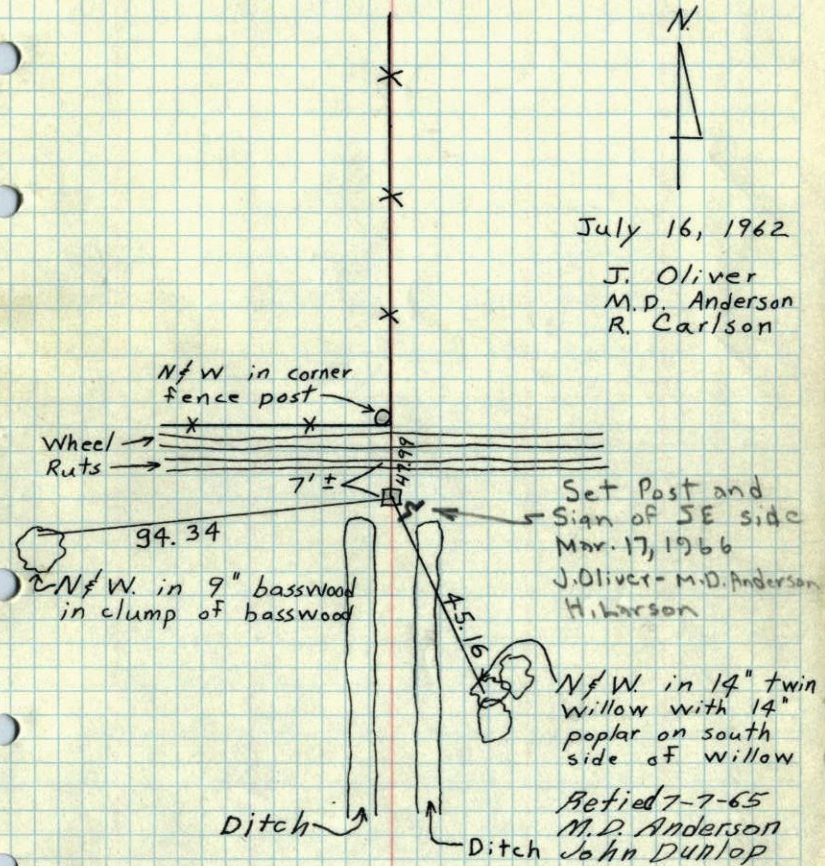 N.
July 16, 1962
J. Oliver
M.D. Anderson
R. Carlson
N & W in corner
fence post
Wheel
Ruts
7' ±
94.34
N & W. in 9" basswood
in clump of basswood
Set Post and
Sign of SE side
Mar. 17, 1966
J. Oliver - M.D. Anderson
H. Larson
45.16
N & W. in 14" twin
willow with 14"
poplar on south
side of willow
Retied 7-7-65
M.D. Anderson
John Dunlop
Ditch
Ditch